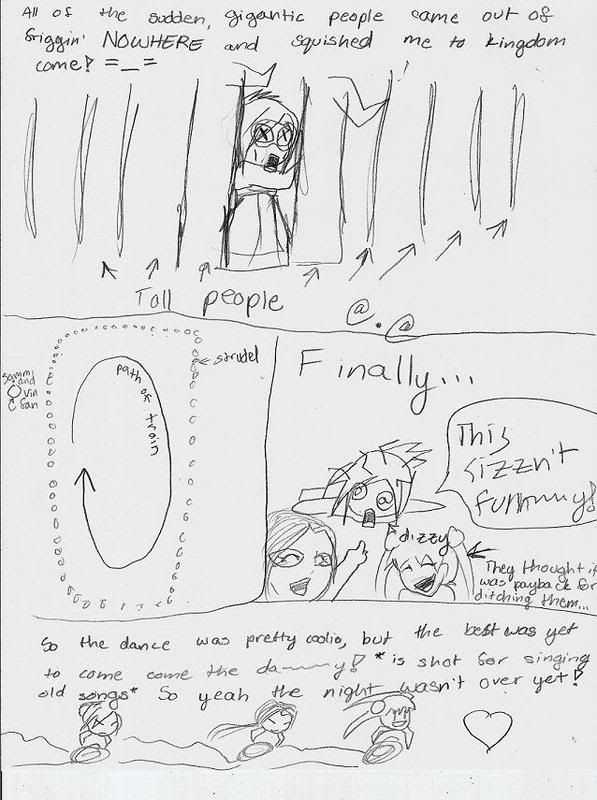 All of the sudden, gigantic people came out of
friggin' NOWHERE and squished me to kingdom
come! =_=
Tall people
@.@
strudel
path of train
Sammi
and
Vin
San
Finally...
This
sizzn't
funnnuy!
dizzy
They thought it
was payback for
ditching them...
So the dance was pretty coolio, but the best was yet
to come come the da~~~y! *is shot for singing
old songs* So yeah the night wasn't over yet!